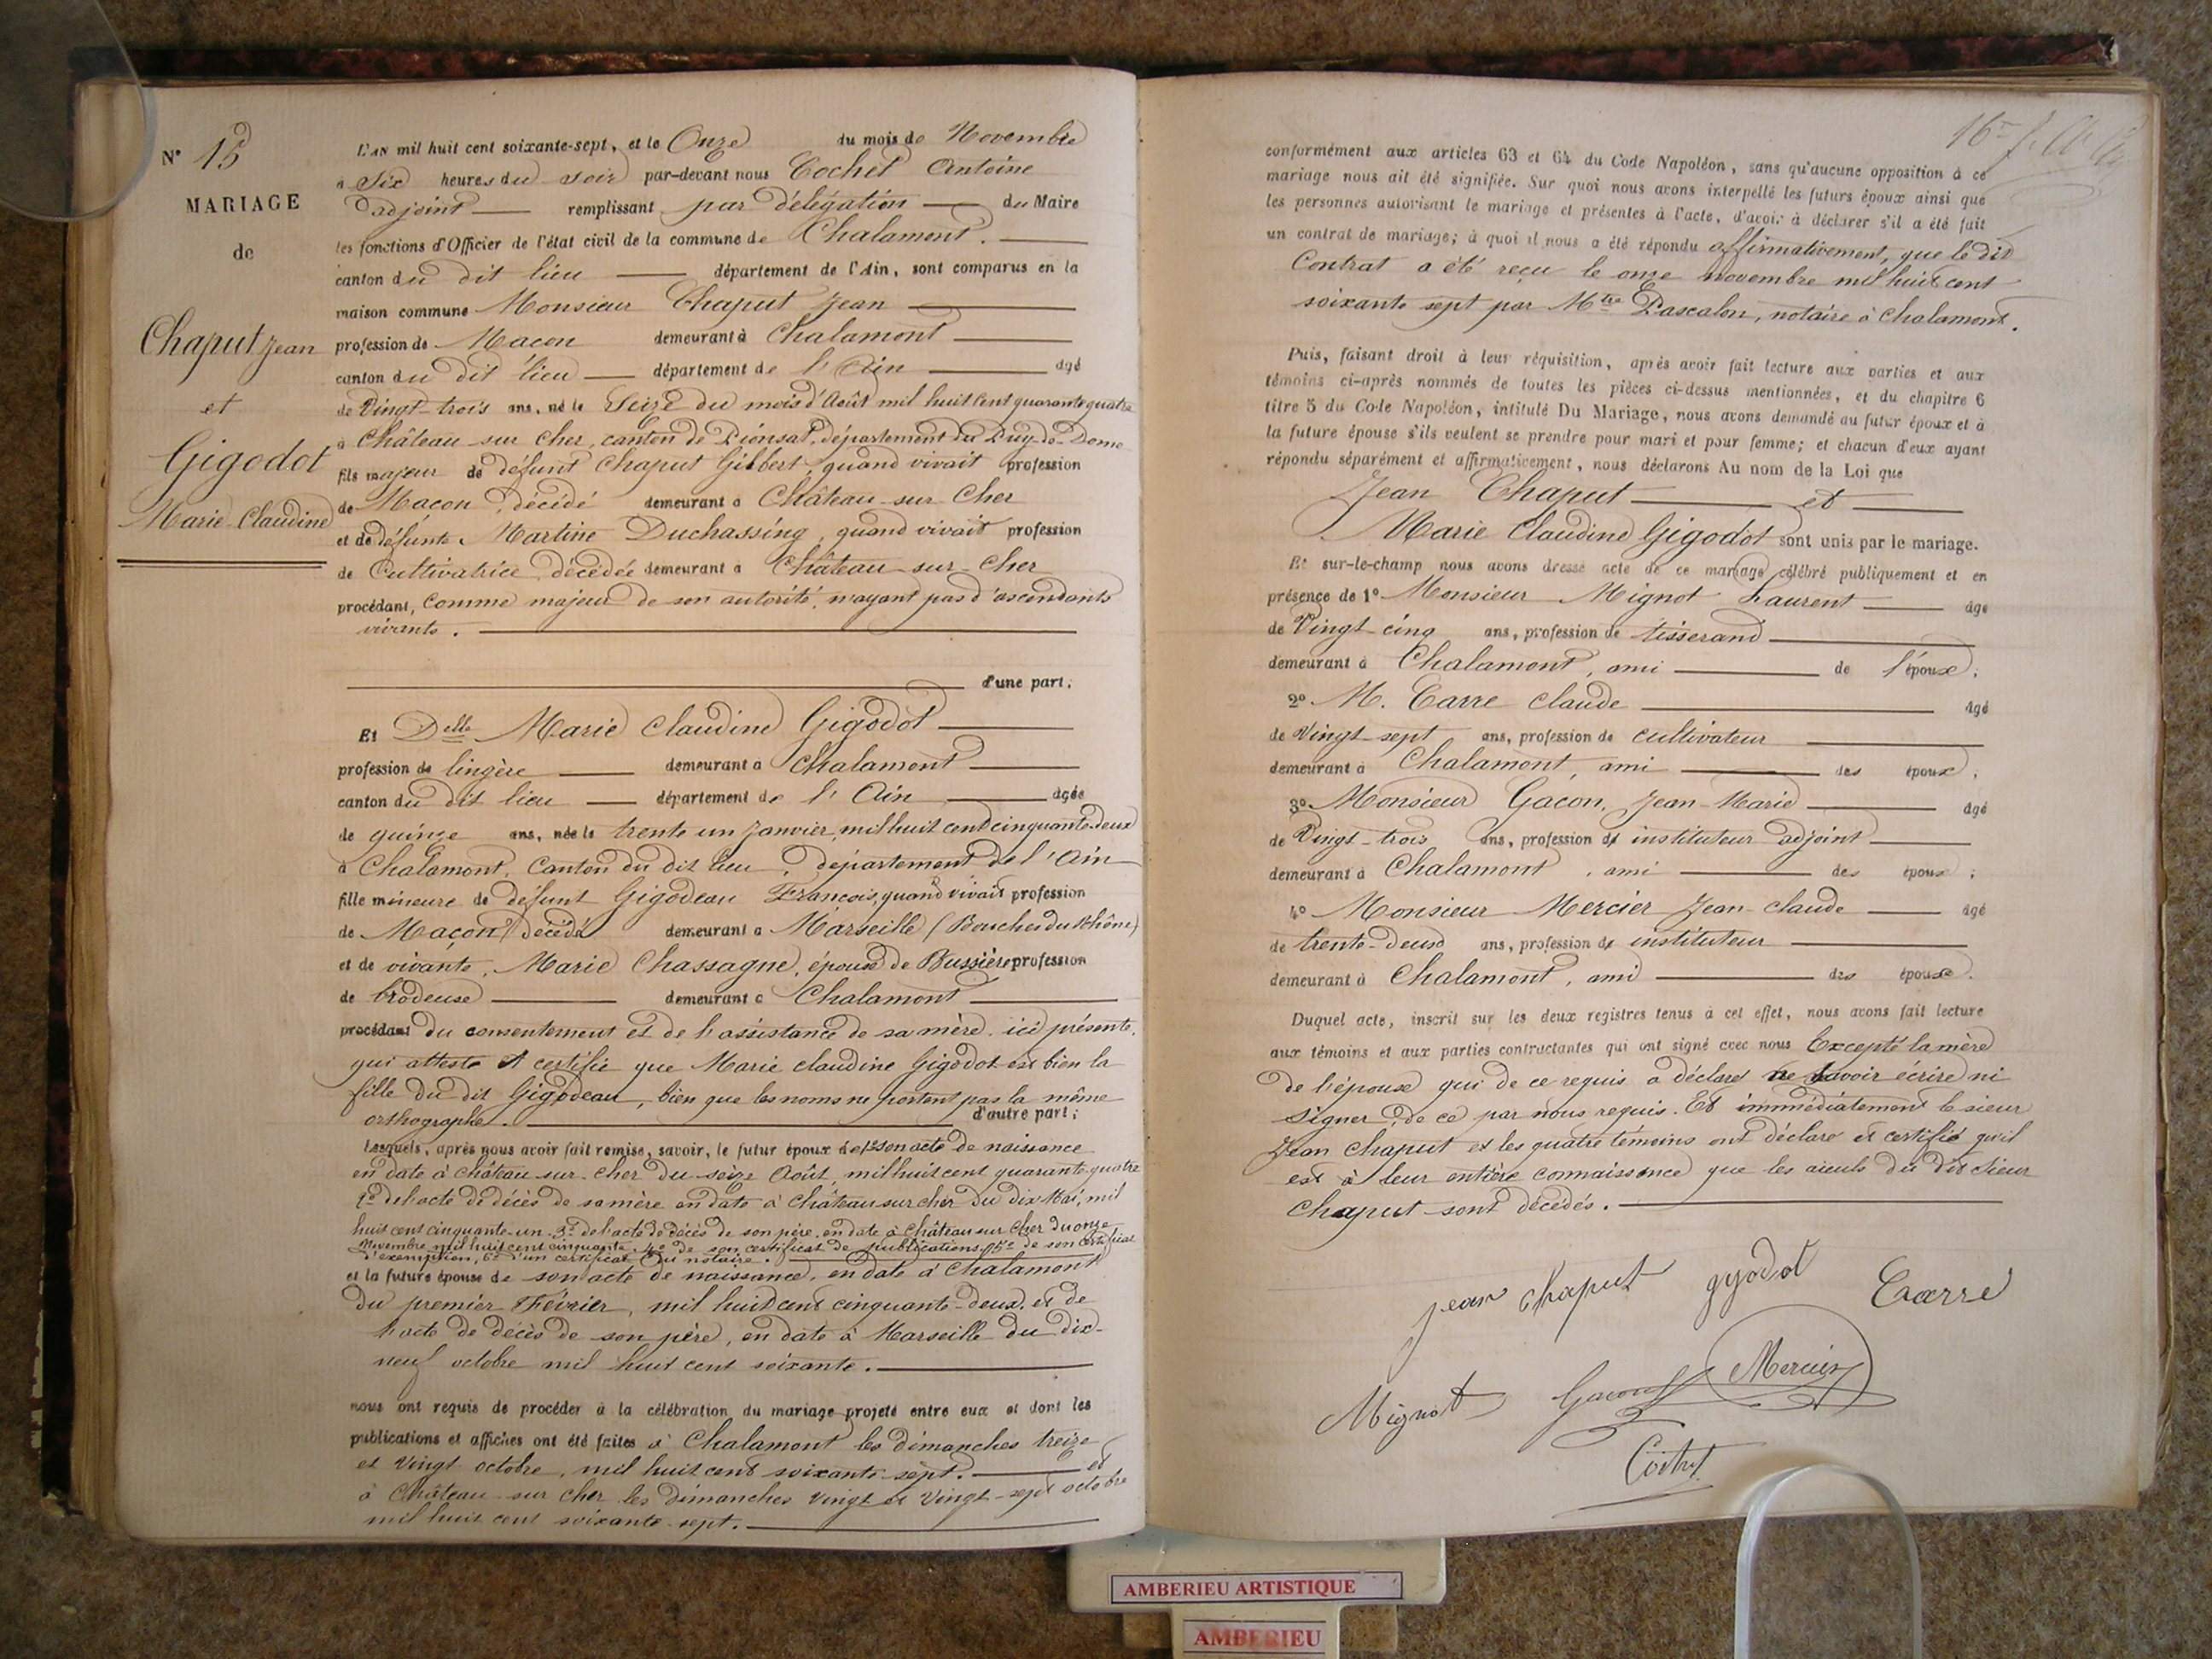 N° 15
MARIAGE
de
Chaput Jean
et
Gigodot
Marie Claudine
L'AN mil huit cent soixante-sept, et le Onze du mois de Novembre
à Six heures du soir par-devant nous Cochet Antoine
adjoint remplissant par délégation du Maire
les fonctions d'Officier de l'état civil de la commune de Chalamont.
canton du dit lieu département de l'Ain, sont comparus en la
maison commune Monsieur Chaput Jean
profession de Macon demeurant à Chalamont
canton du dit lieu département de l'Ain agé
de Vingt-trois ans, né le Seize du mois d'Août mil huit cent quarante quatre
à Château sur Cher, canton de Pionsat, département du Puy-de-Dome
fils majeur de défunt Chaput Gilbert, quand vivait profession
de Macon, décédé demeurant à Château-sur Cher
et de défunte Martine Duchassing, quand vivait profession
de Cultivatrice, décédée demeurant à Château-sur-Cher
procédant, comme majeur de son autorité, n'ayant pas d'ascendants
vivants.
d'une part;
Et Delle Marie Claudine Gigodot
profession de lingère demeurant à Chalamont
canton du dit lieu département de l'Ain agée
de quinze ans, née le trente un Janvier, mil huit cent cinquante deux
à Chalamont, Canton du dit lieu, département de l'Ain
fille mineure de défunt Gigodeau François, quand vivait profession
de Maçon, décédé demeurant à Marseille (Bouches du Rhône)
et de vivante, Marie Chassagne, épouse de Bussière profession
de brodeuse demeurant à Chalamont
procédant du consentement et de l'assistance de sa mère ici présente,
qui atteste et certifie que Marie Claudine Gigodot est bien la
fille du dit Gigodeau, bien que les noms ne portent pas la même
orthographe. d'autre part;
Lesquels, après nous avoir fait remise, savoir, le futur époux de 1° son acte de naissance
en date à Château-sur-Cher du seize Août, mil huit cent quarante-quatre
2° de l'acte de décès de sa mère en date à Château sur cher du dix Mai, mil
huit cent cinquante-un. 3° de l'acte de décès de son père, en date à Château sur Cher du onze
Novembre mil huit cent cinquante. 4° de son certificat de publications. 5° de son certificat
d'exemption, 6° d'un certificat du notaire.
et la future épouse de son acte de naissance, en date à Chalamont
du premier Février, mil huit cent cinquante-deux, et de
l'acte de décès de son père, en date à Marseille du dix-
neuf octobre mil huit cent soixante.
nous ont requis de procéder à la célébration du mariage projeté entre eux et dont les
publications et affiches ont été faites à Chalamont les dimanches treize
et Vingt octobre, mil huit cent soixante-sept. et
à Château-sur Cher les dimanches vingt et Vingt-sept octobre
mil huit cent soixante-sept.
conformément aux articles 63 et 64 du Code Napoléon, sans qu'aucune opposition à ce
mariage nous ait été signifiée. Sur quoi nous avons interpellé les futurs époux ainsi que
les personnes autorisant le mariage et présentes à l'acte, d'avoir à déclarer s'il a été fait
un contrat de mariage; à quoi il nous a été répondu affirmativement, que le dit
Contrat a été reçu le onze novembre mil huit cent
soixante sept par Mtre Pascalon, notaire à Chalamont.
Puis, faisant droit à leur réquisition, après avoir fait lecture aux parties et aux
témoins ci-après nommés de toutes les pièces ci-dessus mentionnées, et du chapitre 6
titre 5 du Code Napoléon, intitulé Du Mariage, nous avons demandé au futur époux et à
la future épouse s'ils veulent se prendre pour mari et pour femme; et chacun d'eux ayant
répondu séparément et affirmativement, nous déclarons Au nom de la Loi que
Jean Chaput et
Marie Claudine Gigodot sont unis par le mariage.
Et sur-le-champ nous avons dressé acte de ce mariage célébré publiquement et en
présence de 1° Monsieur Mignot Laurent âgé
de Vingt-cinq ans, profession de tisserand
demeurant à Chalamont, ami de l'époux;
2° M. Carre Claude agé
de Vingt-sept ans, profession de cultivateur
demeurant à Chalamont, ami des époux;
3° Monsieur Gacon, Jean-Marie agé
de Vingt-trois ans, profession de instituteur adjoint
demeurant à Chalamont, ami des époux;
4° Monsieur Mercier Jean-Claude agé
de trente-deux ans, profession de instituteur
demeurant à Chalamont, ami des époux.
Duquel acte, inscrit sur les deux registres tenus à cet effet, nous avons fait lecture
aux témoins et aux parties contractantes qui ont signé avec nous Excepté la mère
de l'épouse qui de ce requis a déclaré ne savoir écrire ni
signer, de ce par nous requis. Et immédiatement le sieur
Jean Chaput et les quatre témoins ont déclaré et certifié qu'il
est à leur entière connaissance que les aieuls du dit Sieur
Chaput sont décédés.
jean chaput gigodot Carre
Mignot Gacon Mercier
Cochet
AMBERIEU ARTISTIQUE
AMBERIEU